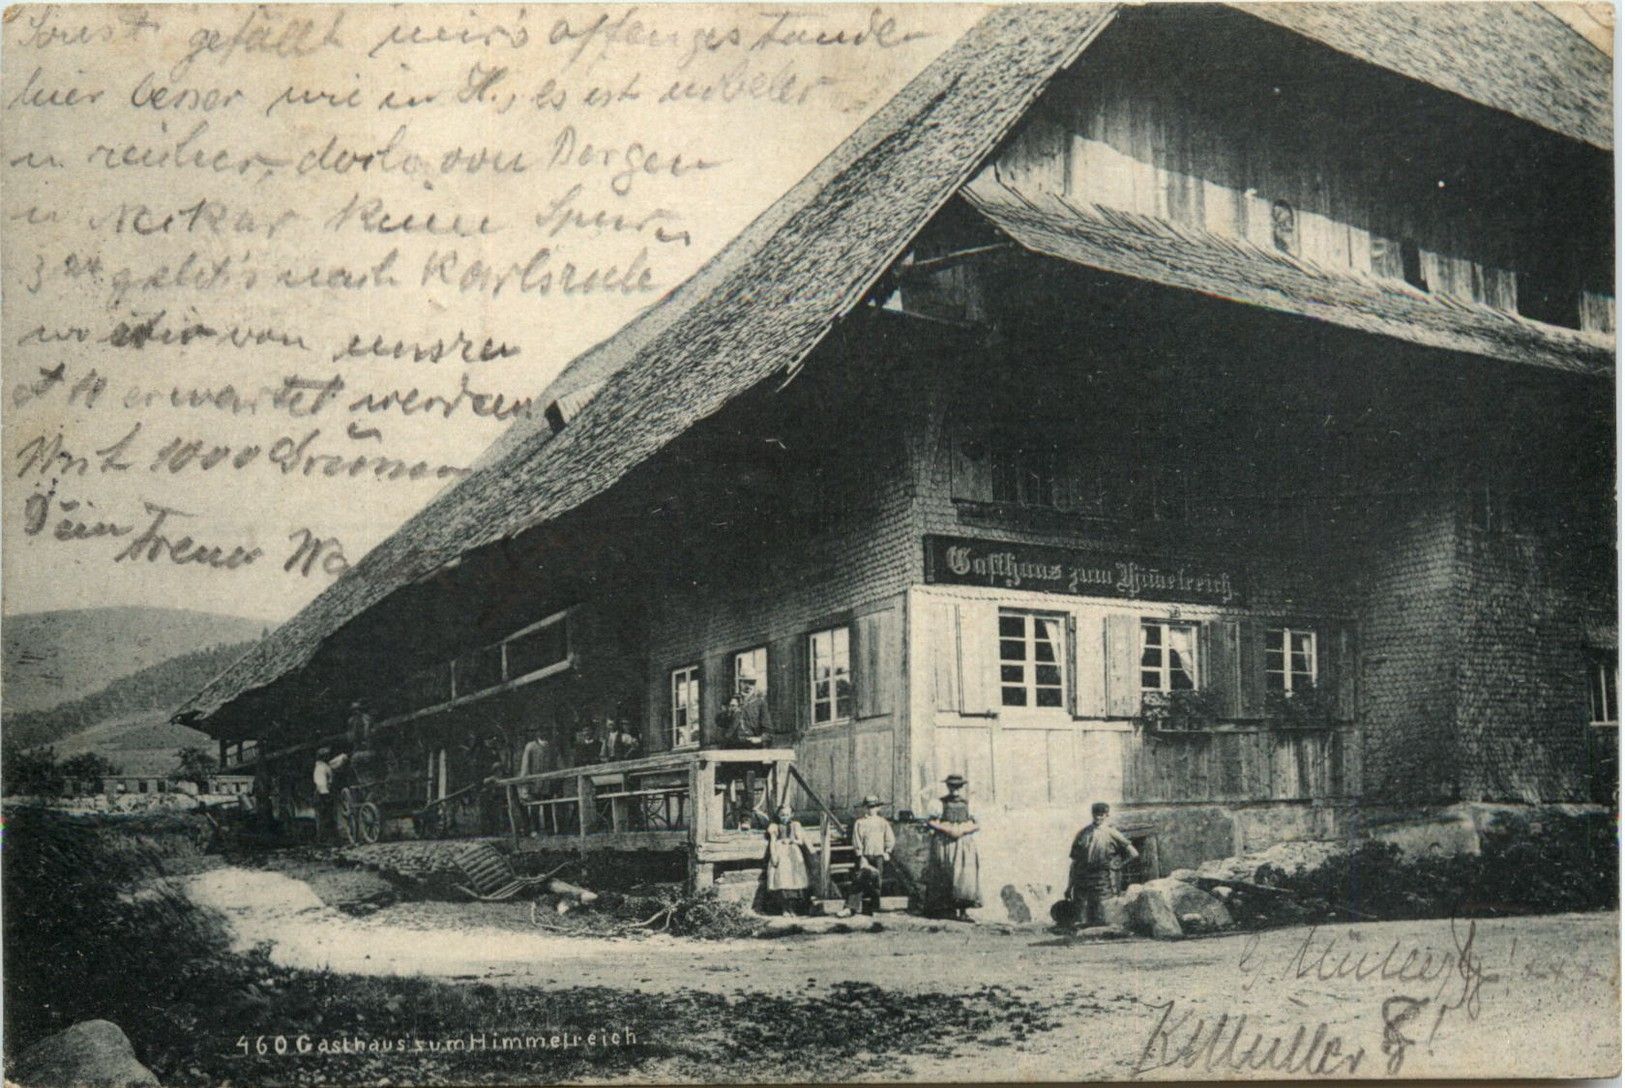 Sonst gefällt mir's offengestanden
hier besser wie in H., es ist nobeler
u reicher, dork von Borgen
u Neckar keine Spur
3 geht's nach Karlsruhe
wo wir von unsren
A H erwartet werden
Mit 1000 Grüssen
Dein Treuer Wa
Gasthaus zum Himelreich
G. Müller
K. Müller
460 Gasthaus zum Himmelreich.